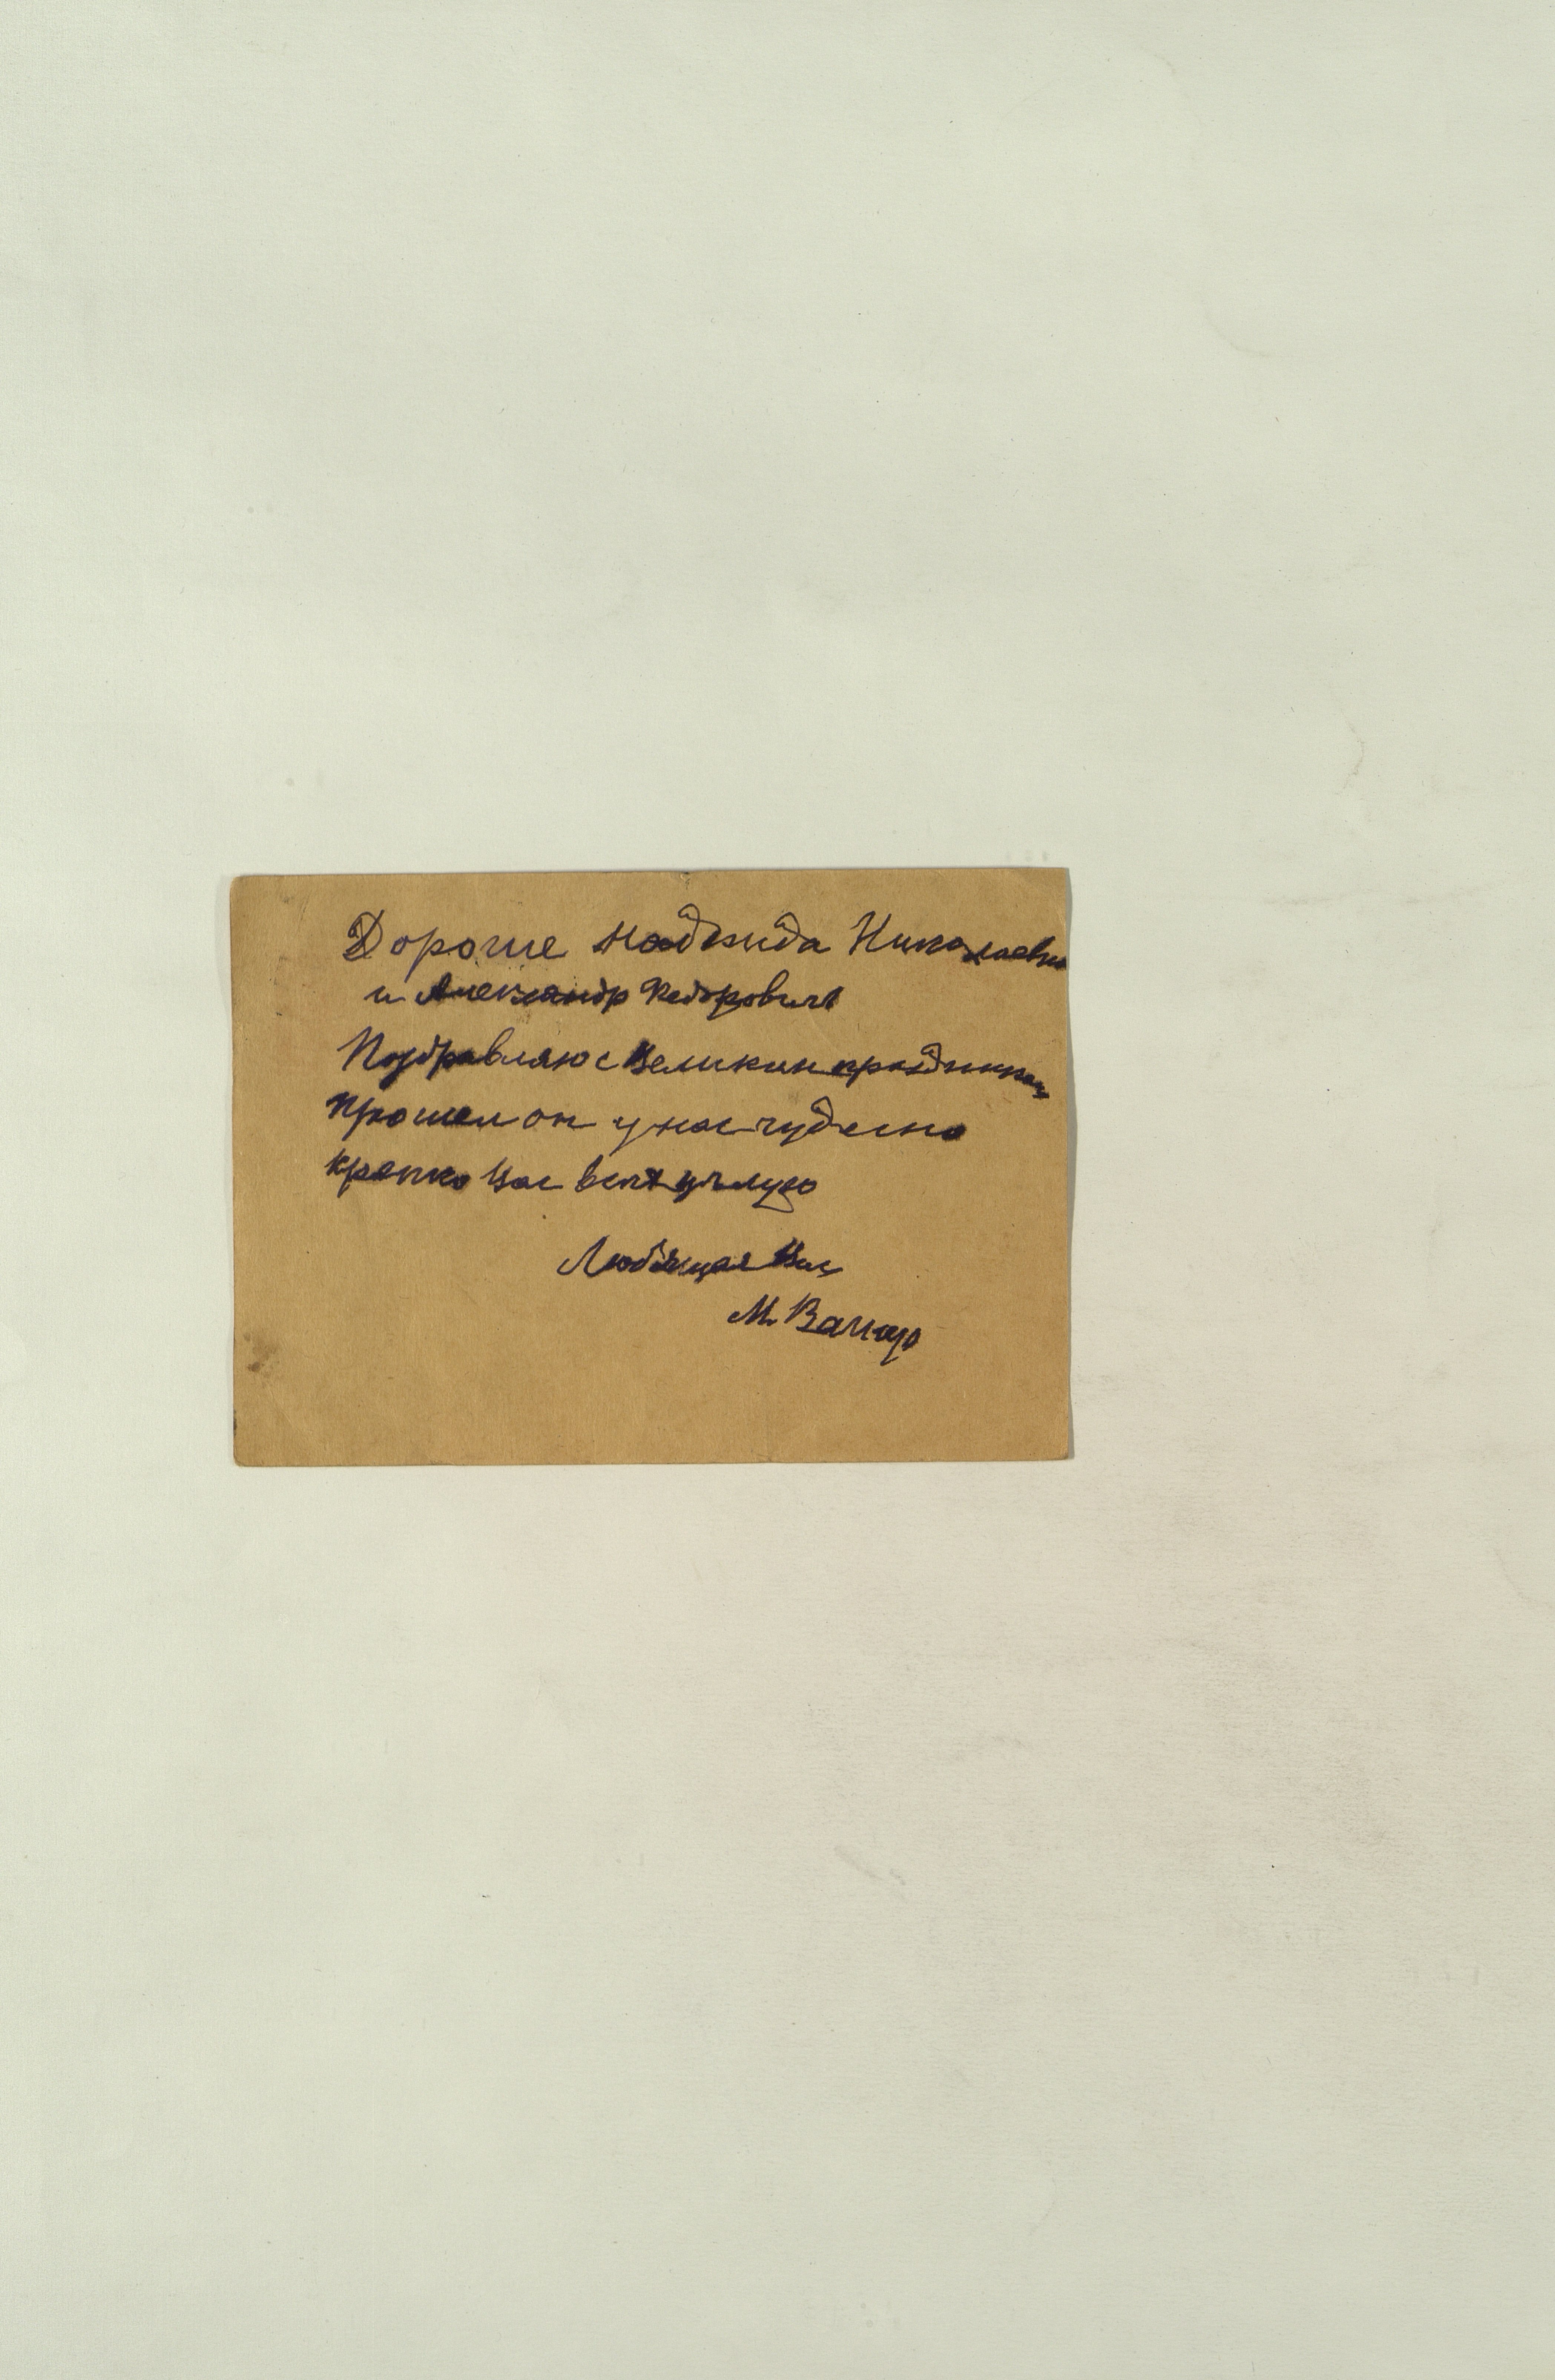 Дорогие Надежда Николаевна
и Александр Федорович
Поздравляю с Великим праздником
Прошел он у нас чудесно
крепко Вас всех целую
Любящая Вас
М.